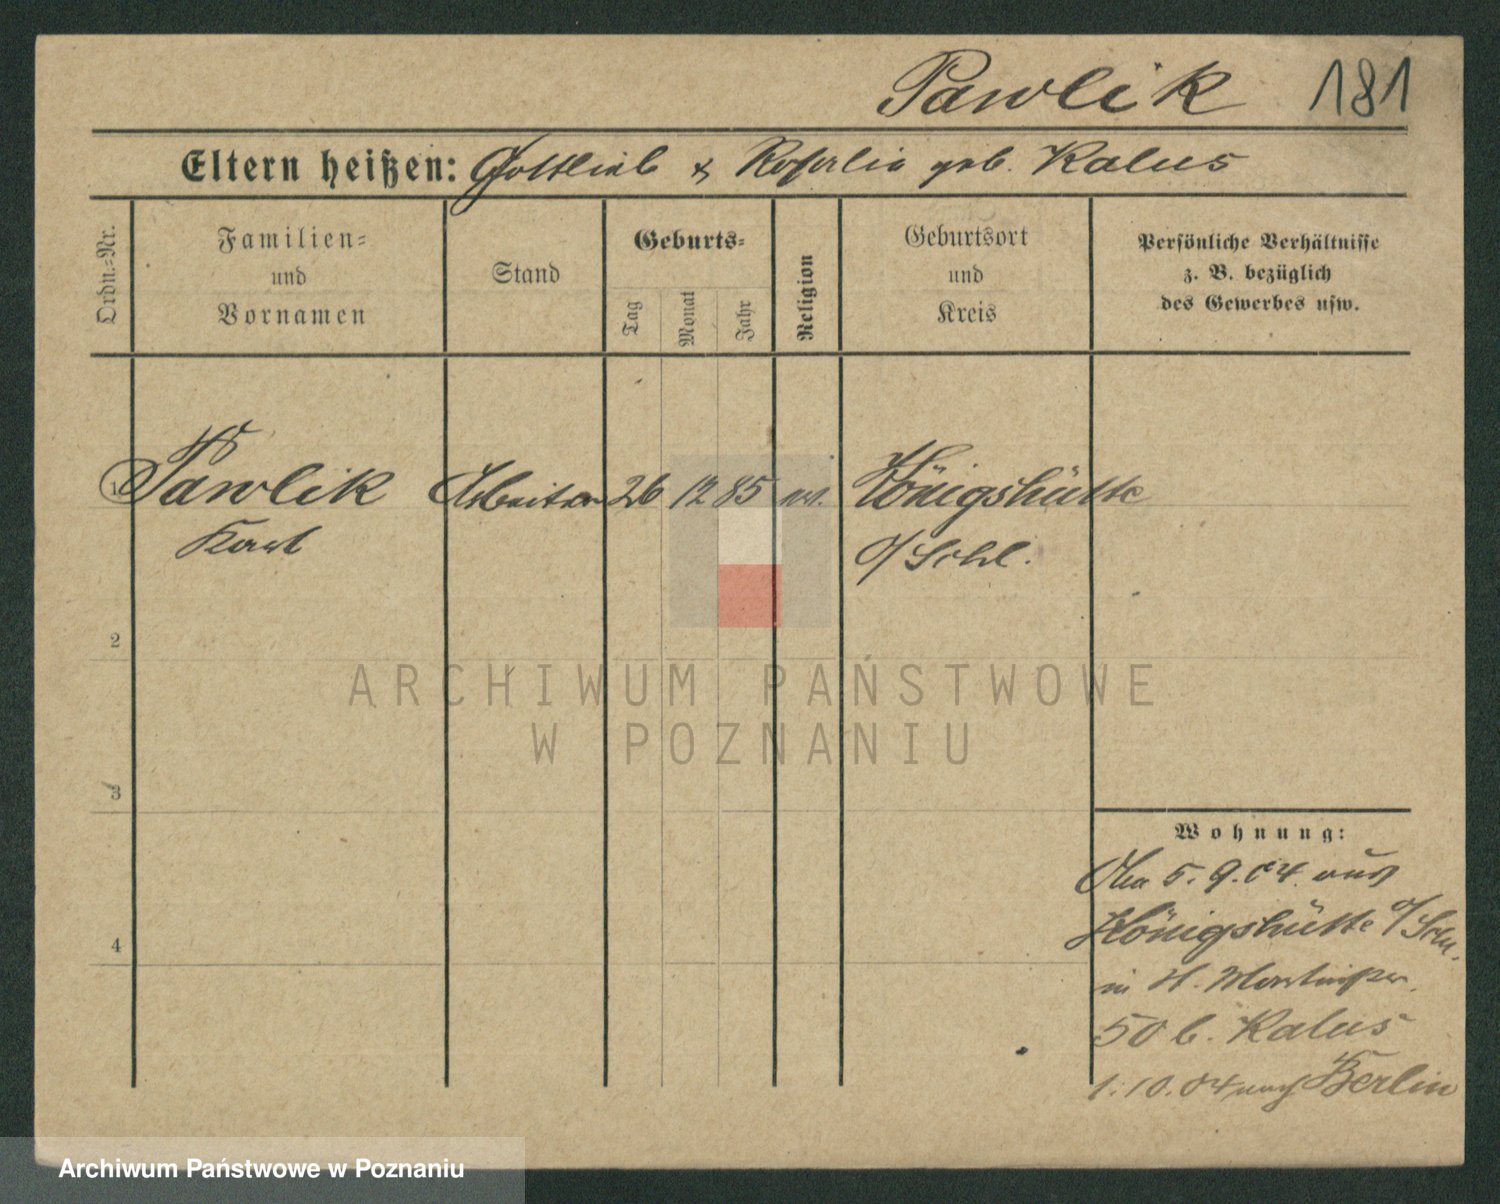 Pawlik 181
Eltern heißen: Gottlieb & Rosalie geb. Kalus
Ordn.-Nr.
Familien-
und
Vornamen
Stand
Geburts-
Tag
Monat
Jahr
Religion
Geburtsort
und
Kreis
Persönliche Verhältnisse
z. B. bezüglich
des Gewerbes usw.
1 Pawlik Arbeiter 26 12 85 ev. Königshütte
Karl O/Schl.
2
3
4
ARCHIWUM PAŃSTWOWE
W POZNANIU
Wohnung:
5.9.04 aus
Königshütte O/Schl.
in H. Martinstr.
50 b. Kalus
1.10.04 nach Berlin
Archiwum Państwowe w Poznaniu